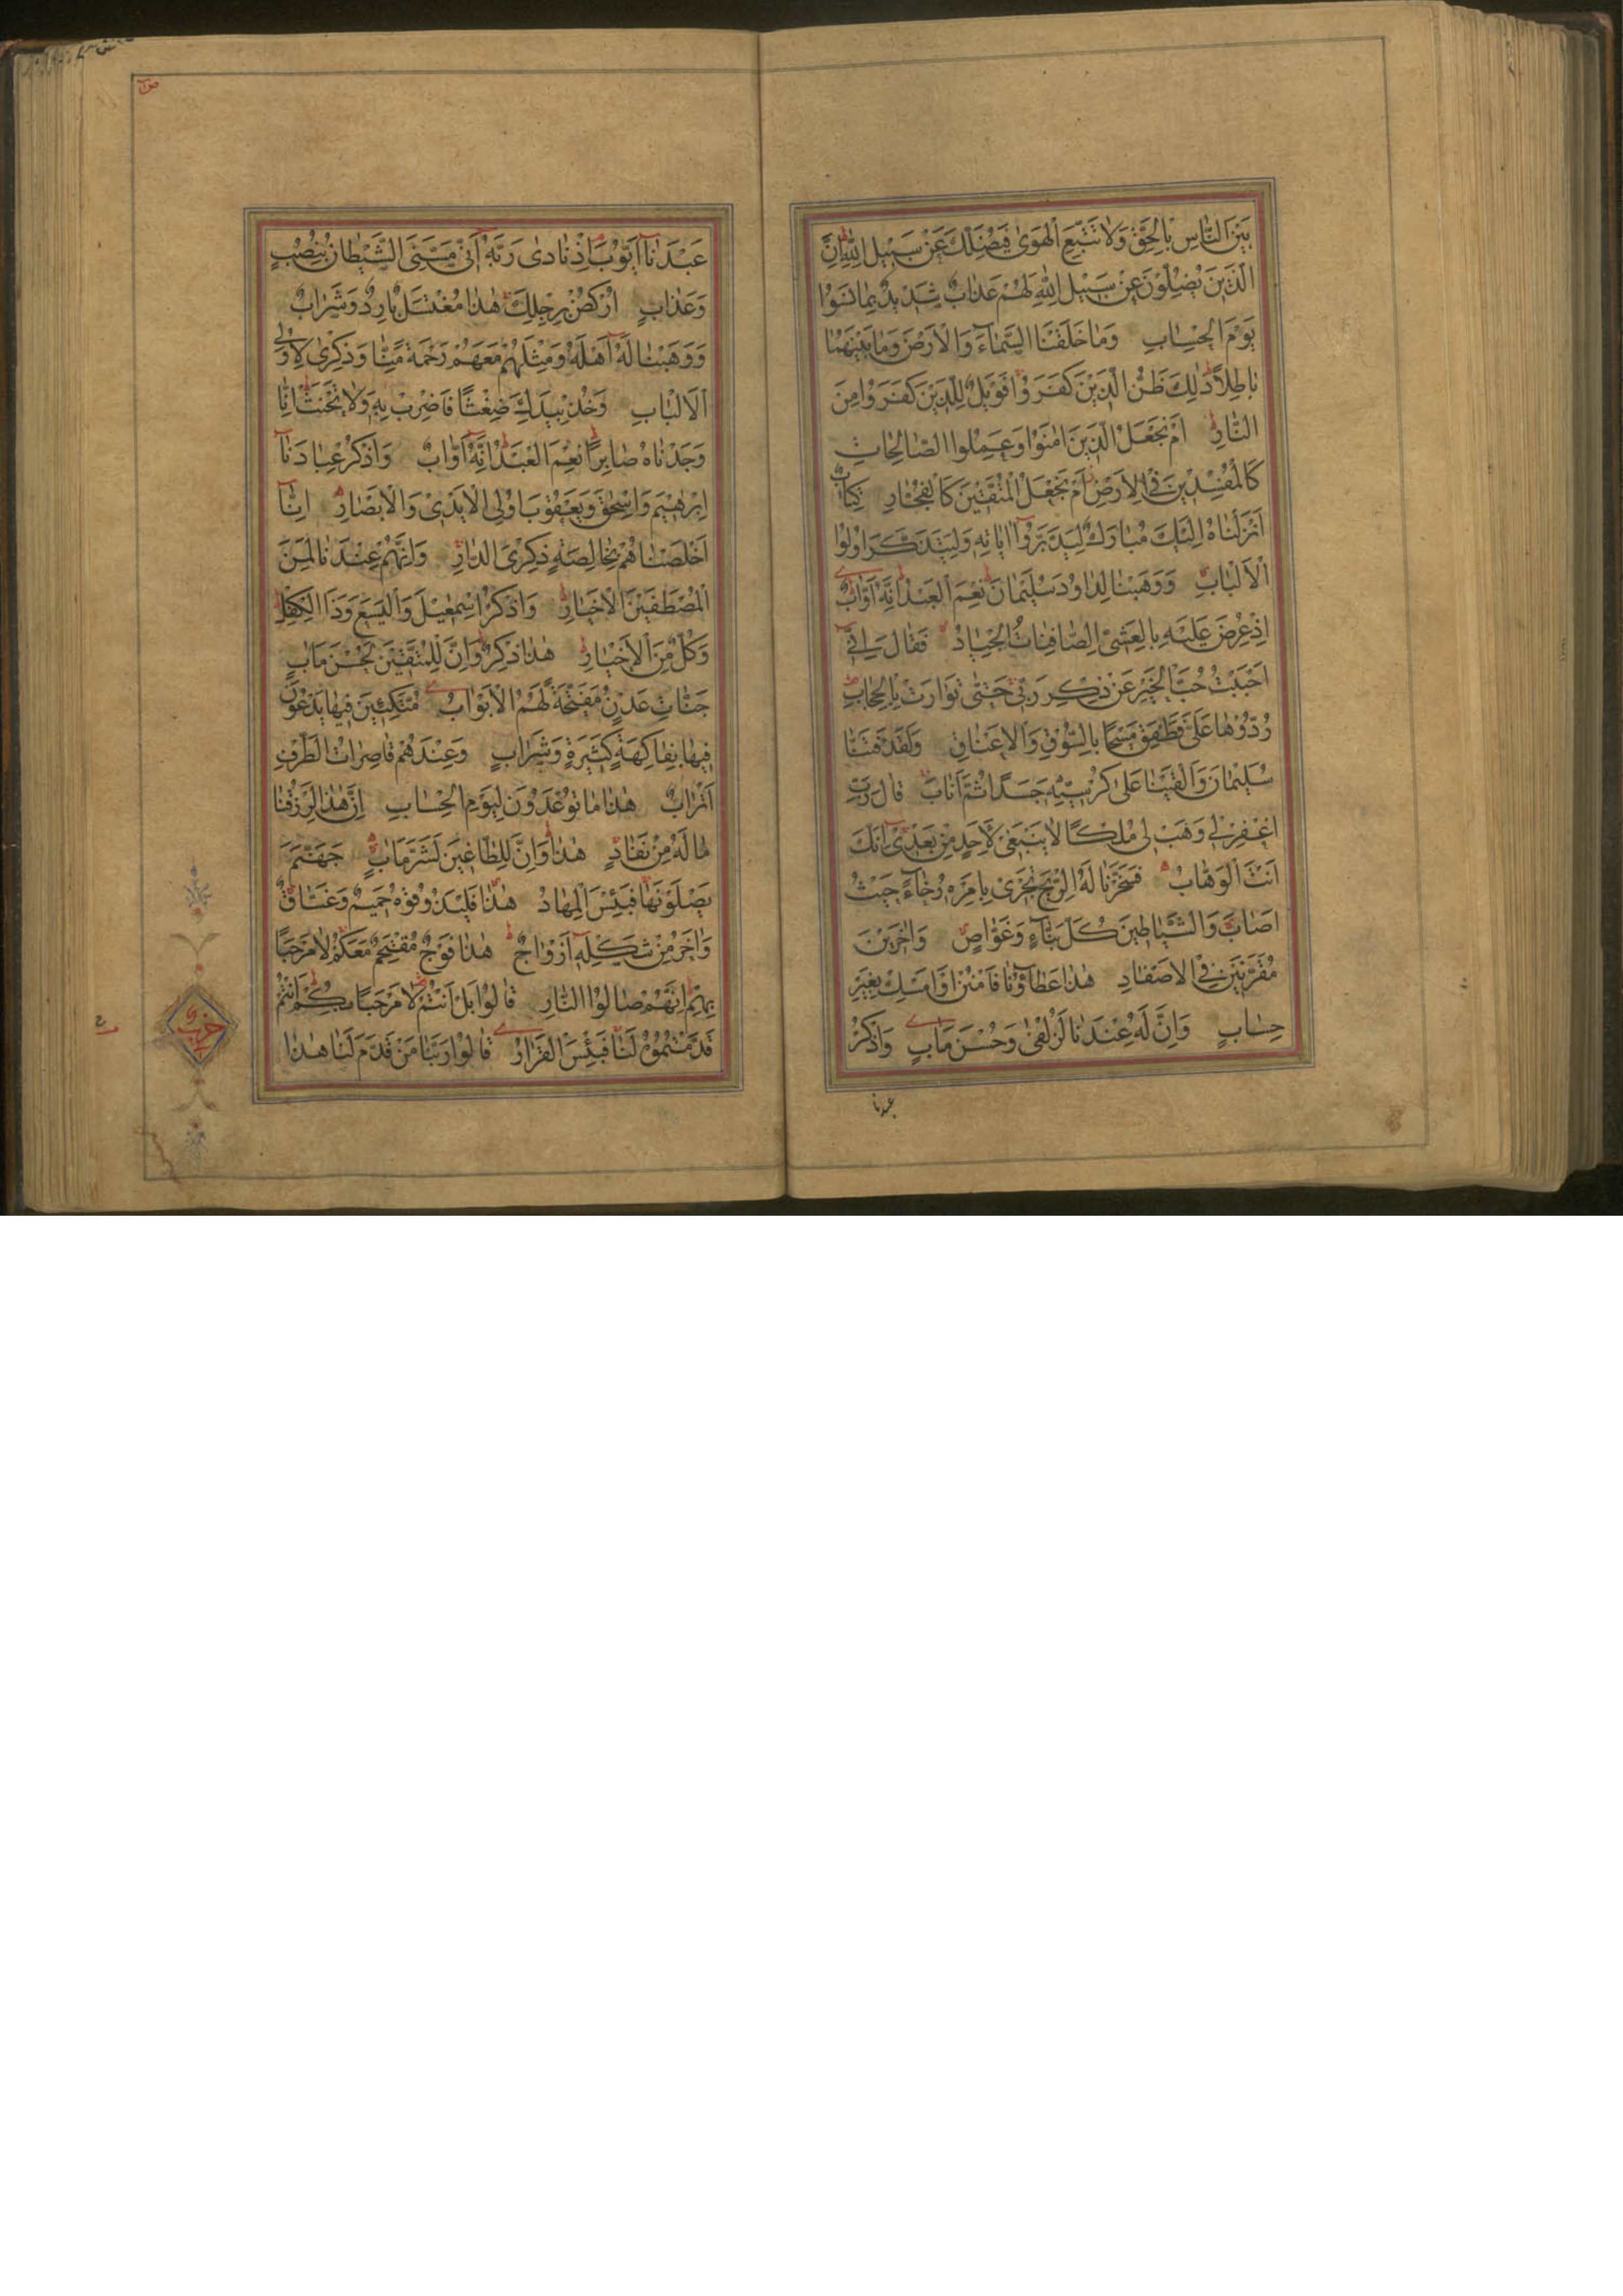 بَيْنَ النَّاسِ بِالْحَقِّ وَلَا تَتَّبِعِ الْهَوٰى فَيُضِلَّكَ عَنْ سَبِيلِ اللّٰهِ اِنَّ
الَّذِينَ يَضِلُّونَ عَنْ سَبِيلِ اللّٰهِ لَهُمْ عَذَابٌ شَدِيدٌ بِمَا نَسُوا
يَوْمَ الْحِسَابِ وَمَا خَلَقْنَا السَّمَاءَ وَالْاَرْضَ وَمَا بَيْنَهُمَا
بَاطِلًا ذٰلِكَ ظَنُّ الَّذِينَ كَفَرُوا فَوَيْلٌ لِلَّذِينَ كَفَرُوا مِنَ
النَّارِ اَمْ نَجْعَلُ الَّذِينَ اٰمَنُوا وَعَمِلُوا الصَّالِحَاتِ
كَالْمُفْسِدِينَ فِي الْاَرْضِ اَمْ نَجْعَلُ الْمُتَّقِينَ كَالْفُجَّارِ كِتَابٌ
اَنْزَلْنَاهُ اِلَيْكَ مُبَارَكٌ لِيَدَّبَّرُوا اٰيَاتِهِ وَلِيَتَذَكَّرَ اُولُوا
الْاَلْبَابِ وَوَهَبْنَا لِدَاوُدَ سُلَيْمَانَ نِعْمَ الْعَبْدُ اِنَّهُ اَوَّابٌ
اِذْ عُرِضَ عَلَيْهِ بِالْعَشِيِّ الصَّافِنَاتُ الْجِيَادُ فَقَالَ اِنِّي
اَحْبَبْتُ حُبَّ الْخَيْرِ عَنْ ذِكْرِ رَبِّي حَتّٰى تَوَارَتْ بِالْحِجَابِ
رُدُّوهَا عَلَيَّ فَطَفِقَ مَسْحًا بِالسُّوقِ وَالْاَعْنَاقِ وَلَقَدْ فَتَنَّا
سُلَيْمَانَ وَاَلْقَيْنَا عَلٰى كُرْسِيِّهِ جَسَدًا ثُمَّ اَنَابَ قَالَ رَبِّ
اغْفِرْ لِي وَهَبْ لِي مُلْكًا لَا يَنْبَغِي لِاَحَدٍ مِنْ بَعْدِي اِنَّكَ
اَنْتَ الْوَهَّابُ فَسَخَّرْنَا لَهُ الرِّيحَ تَجْرِي بِاَمْرِهِ رُخَاءً حَيْثُ
اَصَابَ وَالشَّيَاطِينَ كُلَّ بَنَّاءٍ وَغَوَّاصٍ وَاٰخَرِينَ
مُقَرَّنِينَ فِي الْاَصْفَادِ هٰذَا عَطَاؤُنَا فَامْنُنْ اَوْ اَمْسِكْ بِغَيْرِ
حِسَابٍ وَاِنَّ لَهُ عِنْدَنَا لَزُلْفٰى وَحُسْنَ مَاٰبٍ وَاذْكُرْ
عبدنا
ص
عَبْدَنَا اَيُّوبَ اِذْ نَادٰى رَبَّهُ اَنِّي مَسَّنِيَ الشَّيْطَانُ بِنُصْبٍ
وَعَذَابٍ اُرْكُضْ بِرِجْلِكَ هٰذَا مُغْتَسَلٌ بَارِدٌ وَشَرَابٌ
وَوَهَبْنَا لَهُ اَهْلَهُ وَمِثْلَهُمْ مَعَهُمْ رَحْمَةً مِنَّا وَذِكْرٰى لِاُولِي
الْاَلْبَابِ وَخُذْ بِيَدِكَ ضِغْثًا فَاضْرِبْ بِهِ وَلَا تَحْنَثْ اِنَّا
وَجَدْنَاهُ صَابِرًا نِعْمَ الْعَبْدُ اِنَّهُ اَوَّابٌ وَاذْكُرْ عِبَادَنَا
اِبْرٰهِيمَ وَاِسْحٰقَ وَيَعْقُوبَ اُولِي الْاَيْدِي وَالْاَبْصَارِ اِنَّا
اَخْلَصْنَاهُمْ بِخَالِصَةٍ ذِكْرَى الدَّارِ وَاِنَّهُمْ عِنْدَنَا لَمِنَ
الْمُصْطَفَيْنَ الْاَخْيَارِ وَاذْكُرْ اِسْمٰعِيلَ وَالْيَسَعَ وَذَا الْكِفْلِ
وَكُلٌّ مِنَ الْاَخْيَارِ هٰذَا ذِكْرٌ وَاِنَّ لِلْمُتَّقِينَ لَحُسْنَ مَاٰبٍ
جَنَّاتِ عَدْنٍ مُفَتَّحَةً لَهُمُ الْاَبْوَابُ مُتَّكِئِينَ فِيهَا يَدْعُونَ
فِيهَا بِفَاكِهَةٍ كَثِيرَةٍ وَشَرَابٍ وَعِنْدَهُمْ قَاصِرَاتُ الطَّرْفِ
اَتْرَابٌ هٰذَا مَا تُوعَدُونَ لِيَوْمِ الْحِسَابِ اِنَّ هٰذَا لَرِزْقُنَا
مَا لَهُ مِنْ نَفَادٍ هٰذَا وَاِنَّ لِلطَّاغِينَ لَشَرَّ مَاٰبٍ جَهَنَّمَ
يَصْلَوْنَهَا فَبِئْسَ الْمِهَادُ هٰذَا فَلْيَذُوقُوهُ حَمِيمٌ وَغَسَّاقٌ
وَاٰخَرُ مِنْ شَكْلِهِ اَزْوَاجٌ هٰذَا فَوْجٌ مُقْتَحِمٌ مَعَكُمْ لَا مَرْحَبًا
بِهِمْ اِنَّهُمْ صَالُوا النَّارِ قَالُوا بَلْ اَنْتُمْ لَا مَرْحَبًا بِكُمْ اَنْتُمْ
قَدَّمْتُمُوهُ لَنَا فَبِئْسَ الْقَرَارُ قَالُوا رَبَّنَا مَنْ قَدَّمَ لَنَا هٰذَا
حزب